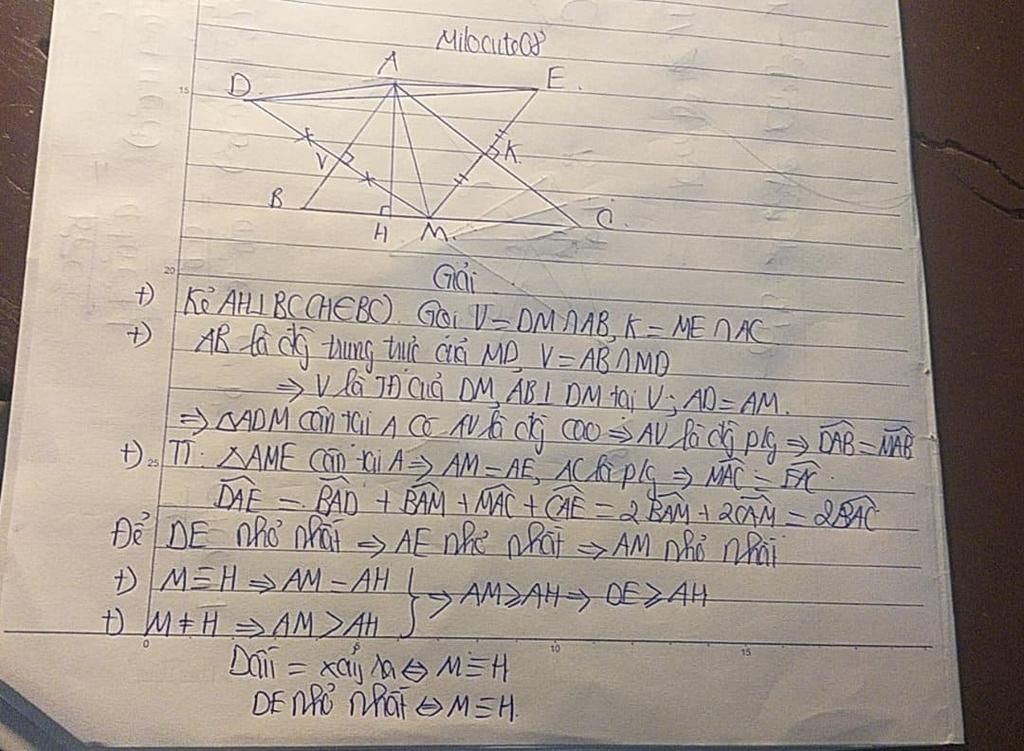 Milocute08
A
D
E
15
V
K
B
C
H
M
20
Giải
+) Kẻ AH⊥BC(H∈BC) Gọi V=DM∩AB, K=ME∩AC
+) AB là đg trung trực của MD, V=AB∩MD
⇒ V là TĐ của DM, AB⊥DM tại V; AD=AM.
⇒ △ADM cân tại A có AV là đg cao ⇒ AV là đg p/g ⇒ DAB=MAB
+) 25 TT: △AME cân tại A ⇒ AM=AE, AC là p/g ⇒ MAC=EAC.
DAE=BAD+BAM+MAC+CAE=2BAM+2CAM=2BAC
Để DE nhỏ nhất ⇒ AE nhỏ nhất ⇒ AM nhỏ nhất
+) M≡H ⇒ AM=AH } ⇒ AM≥AH ⇒ DE≥AH
+) M≠H ⇒ AM>AH
0 10 15
Dấu = xảy ra ⇔ M≡H
DE nhỏ nhất ⇔ M≡H.